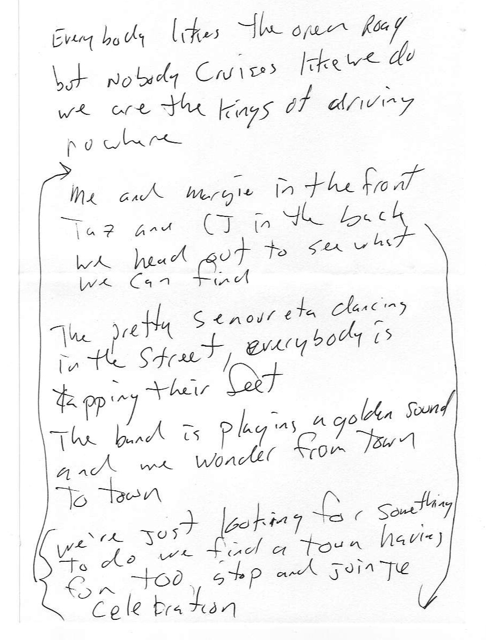 Everybody likes the open Road
but Nobody Cruises like we do
we are the kings of driving
nowhere
me and margie in the front
Taz and CJ in the back
we head out to see what
we can find
The pretty senoureta dancing
in the street, everybody is
tapping their feet
The band is playing a golden sound
and we wonder from town
to town
we're just looking for something
to do we find a town having
fun too, stop and join the
celebration